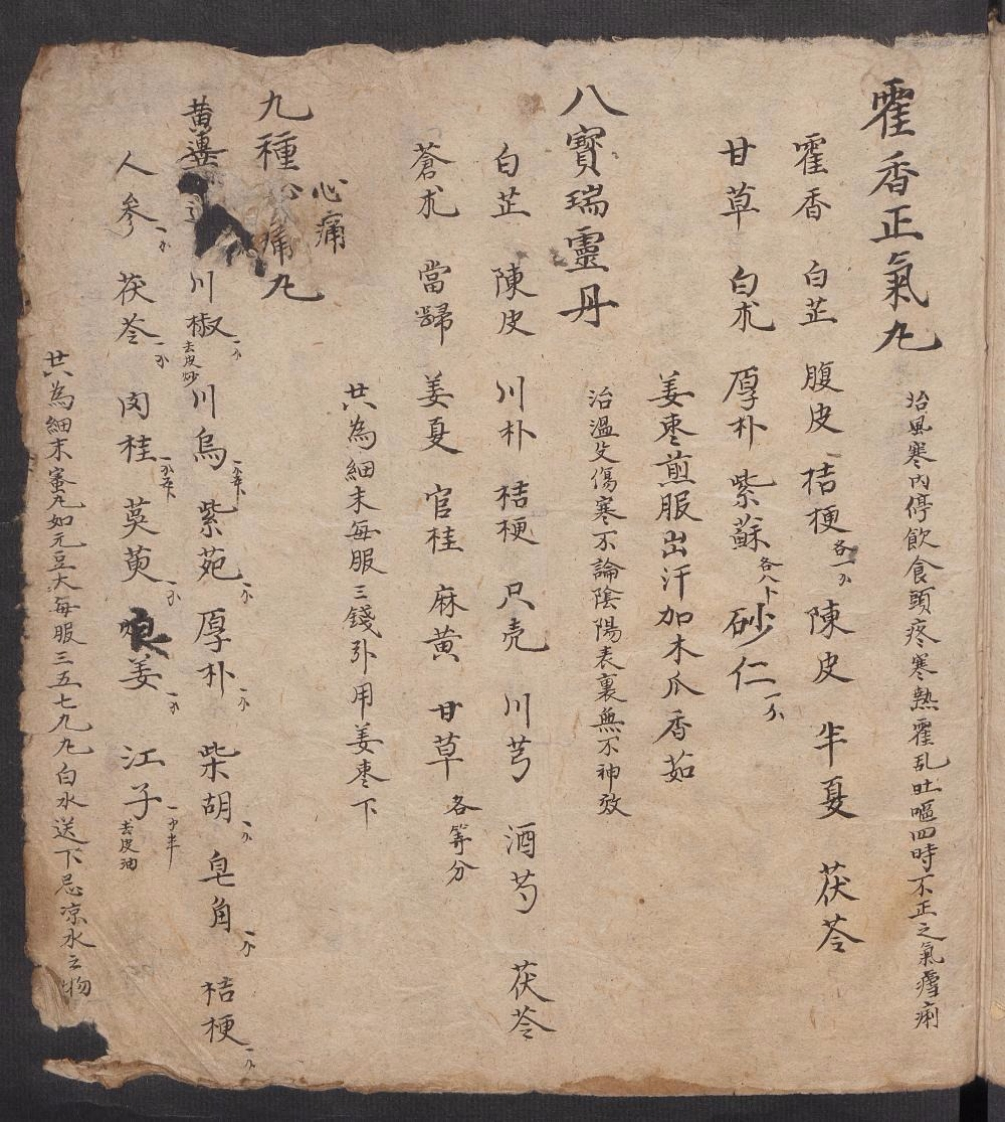 霍香正氣丸
治風寒內停飲食頭疼寒熱霍乱吐嘔四時不正之氣瘧痢
霍香 白芷 腹皮 桔梗各一分 陳皮 半夏 茯苓
甘草 白朮 厚朴 紫蘇各八卜 砂仁一分
姜枣煎服出汗加木瓜香茹
八寶瑞靈丹
治溫疫傷寒不論陰陽表裏無不神效
白芷 陳皮 川朴 桔梗 只壳 川芎 酒芍 茯苓
蒼朮 當歸 姜夏 官桂 麻黄 甘草 各等分
共為細末每服三錢引用姜枣下
九種心痛丸
心痛
黄連 川椒一分去皮炒 川烏一分半 紫菀一分 厚朴一分 柴胡一分 皂角一分 桔梗一分
人参一分 茯苓一分 肉桂 萸萸一分 良姜一分 江子一分半去皮油
共為細末蜜丸如元豆大每服三五七九丸白水送下忌凉水之物